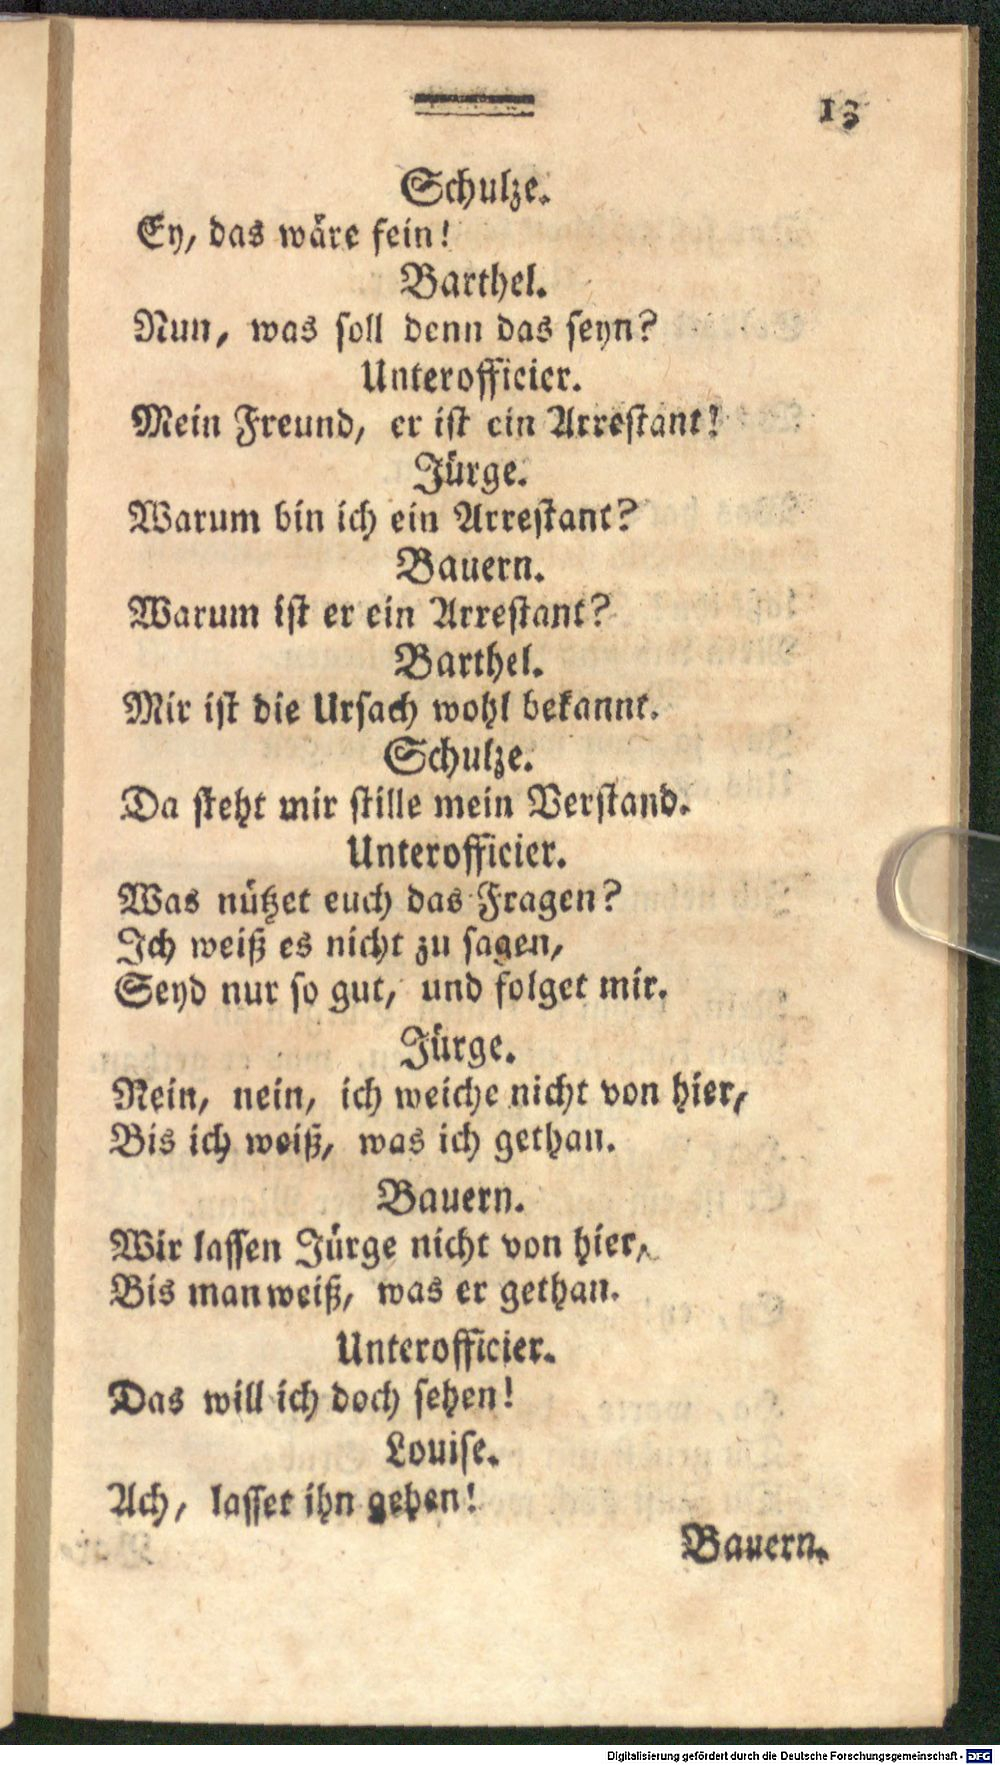 13
Schulze.
Ey, das wäre fein!
Barthel.
Nun, was soll denn das seyn?
Unterofficier.
Mein Freund, er ist ein Arrestant!
Jürge.
Warum bin ich ein Arrestant?
Bauern.
Warum ist er ein Arrestant?
Barthel.
Mir ist die Ursach wohl bekannt.
Schulze.
Da steht mir stille mein Verstand.
Unterofficier.
Was nützet euch das Fragen?
Ich weiß es nicht zu sagen,
Seyd nur so gut, und folget mir.
Jürge.
Nein, nein, ich weiche nicht von hier,
Bis ich weiß, was ich gethan.
Bauern.
Wir lassen Jürge nicht von hier,
Bis man weiß, was er gethan.
Unterofficier.
Das will ich doch sehen!
Louise.
Ach, lasset ihn gehen!
Bauern.
Digitalisierung gefördert durch die Deutsche Forschungsgemeinschaft - DFG